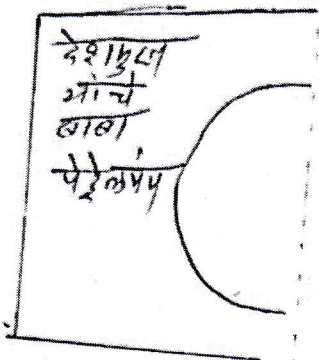 देशमुख
यांचे
बाबा
पेट्रोलपंप